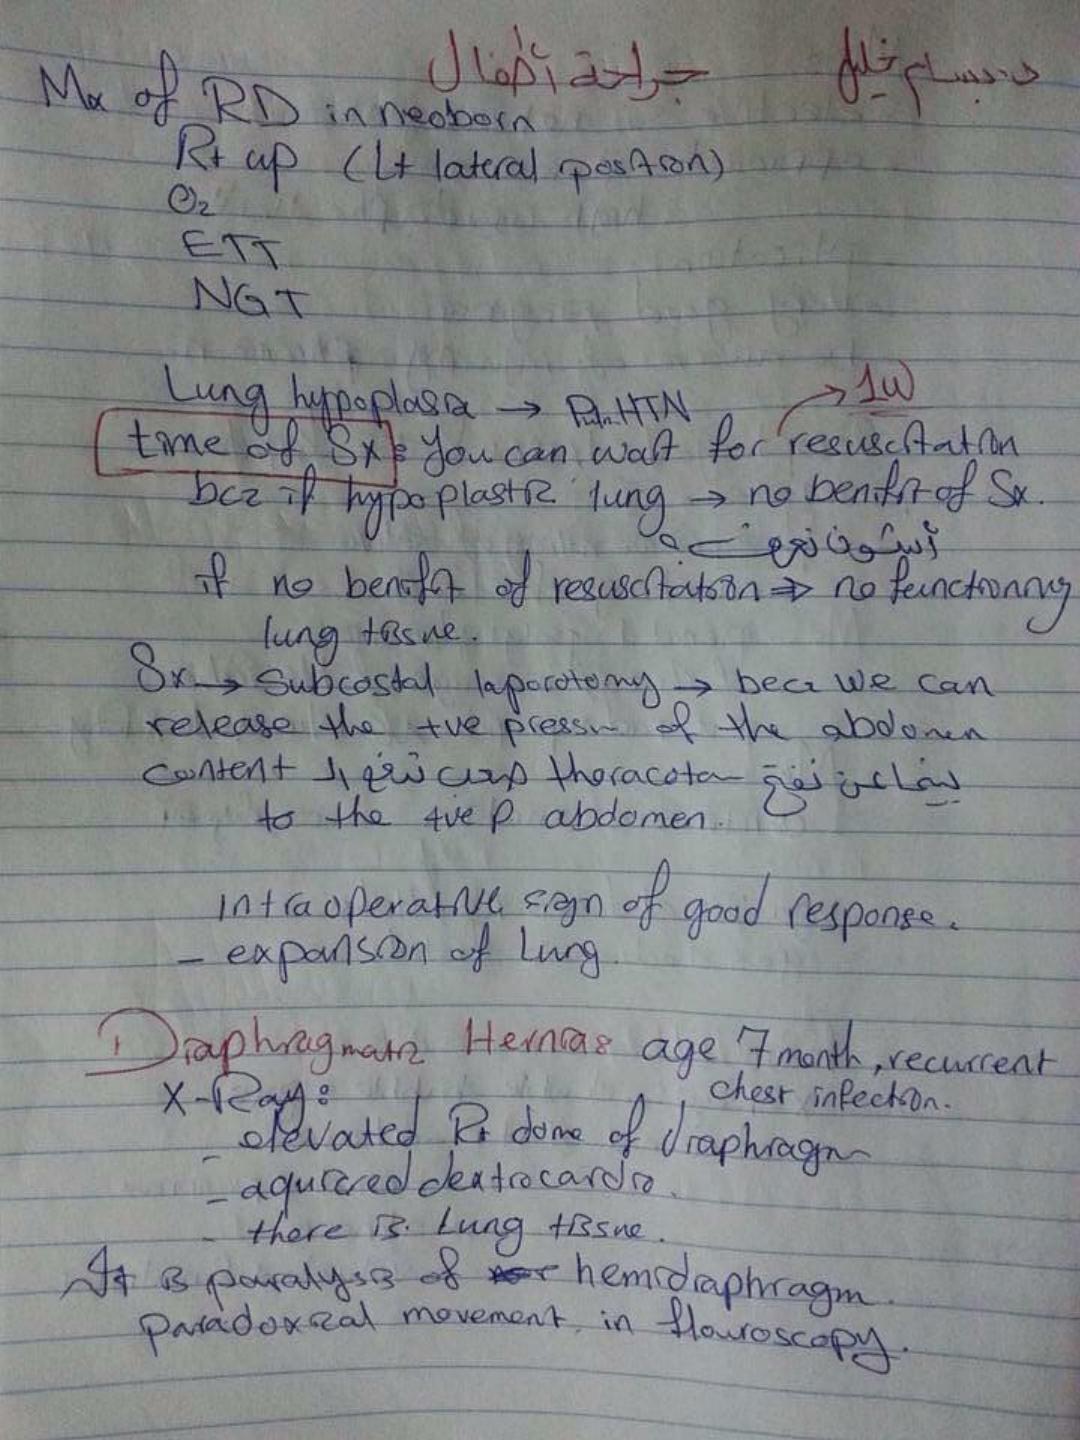 د. بسام خليل جراحة أطفال
Mx of RD in neoborn
Rt up (Lt lateral position)
O2
ETT
NGT
Lung hypoplasia → Pul.HTN → 1W
time of Sx: You can wait for resuscitation
bcz if hypoplastic lung → no benifit of Sx.
if no benifit of resuscitation ⇒ no functioning
lung tissue.
Sx → Subcostal laparotomy → becz we can
release the +ve pressure of the abdomen
content thoracoto
to the +ve P abdomen.
intraoperative sign of good response.
- expansion of Lung.
Diaphragmatic Hernia: age 7 month, recurrent
chest infection.
X-Ray:
- elevated Rt dome of diaphragm
- aquired dextrocardia.
- there is Lung tissue.
It is paralysis of hemidiaphragm.
paradoxical movement in flouroscopy.